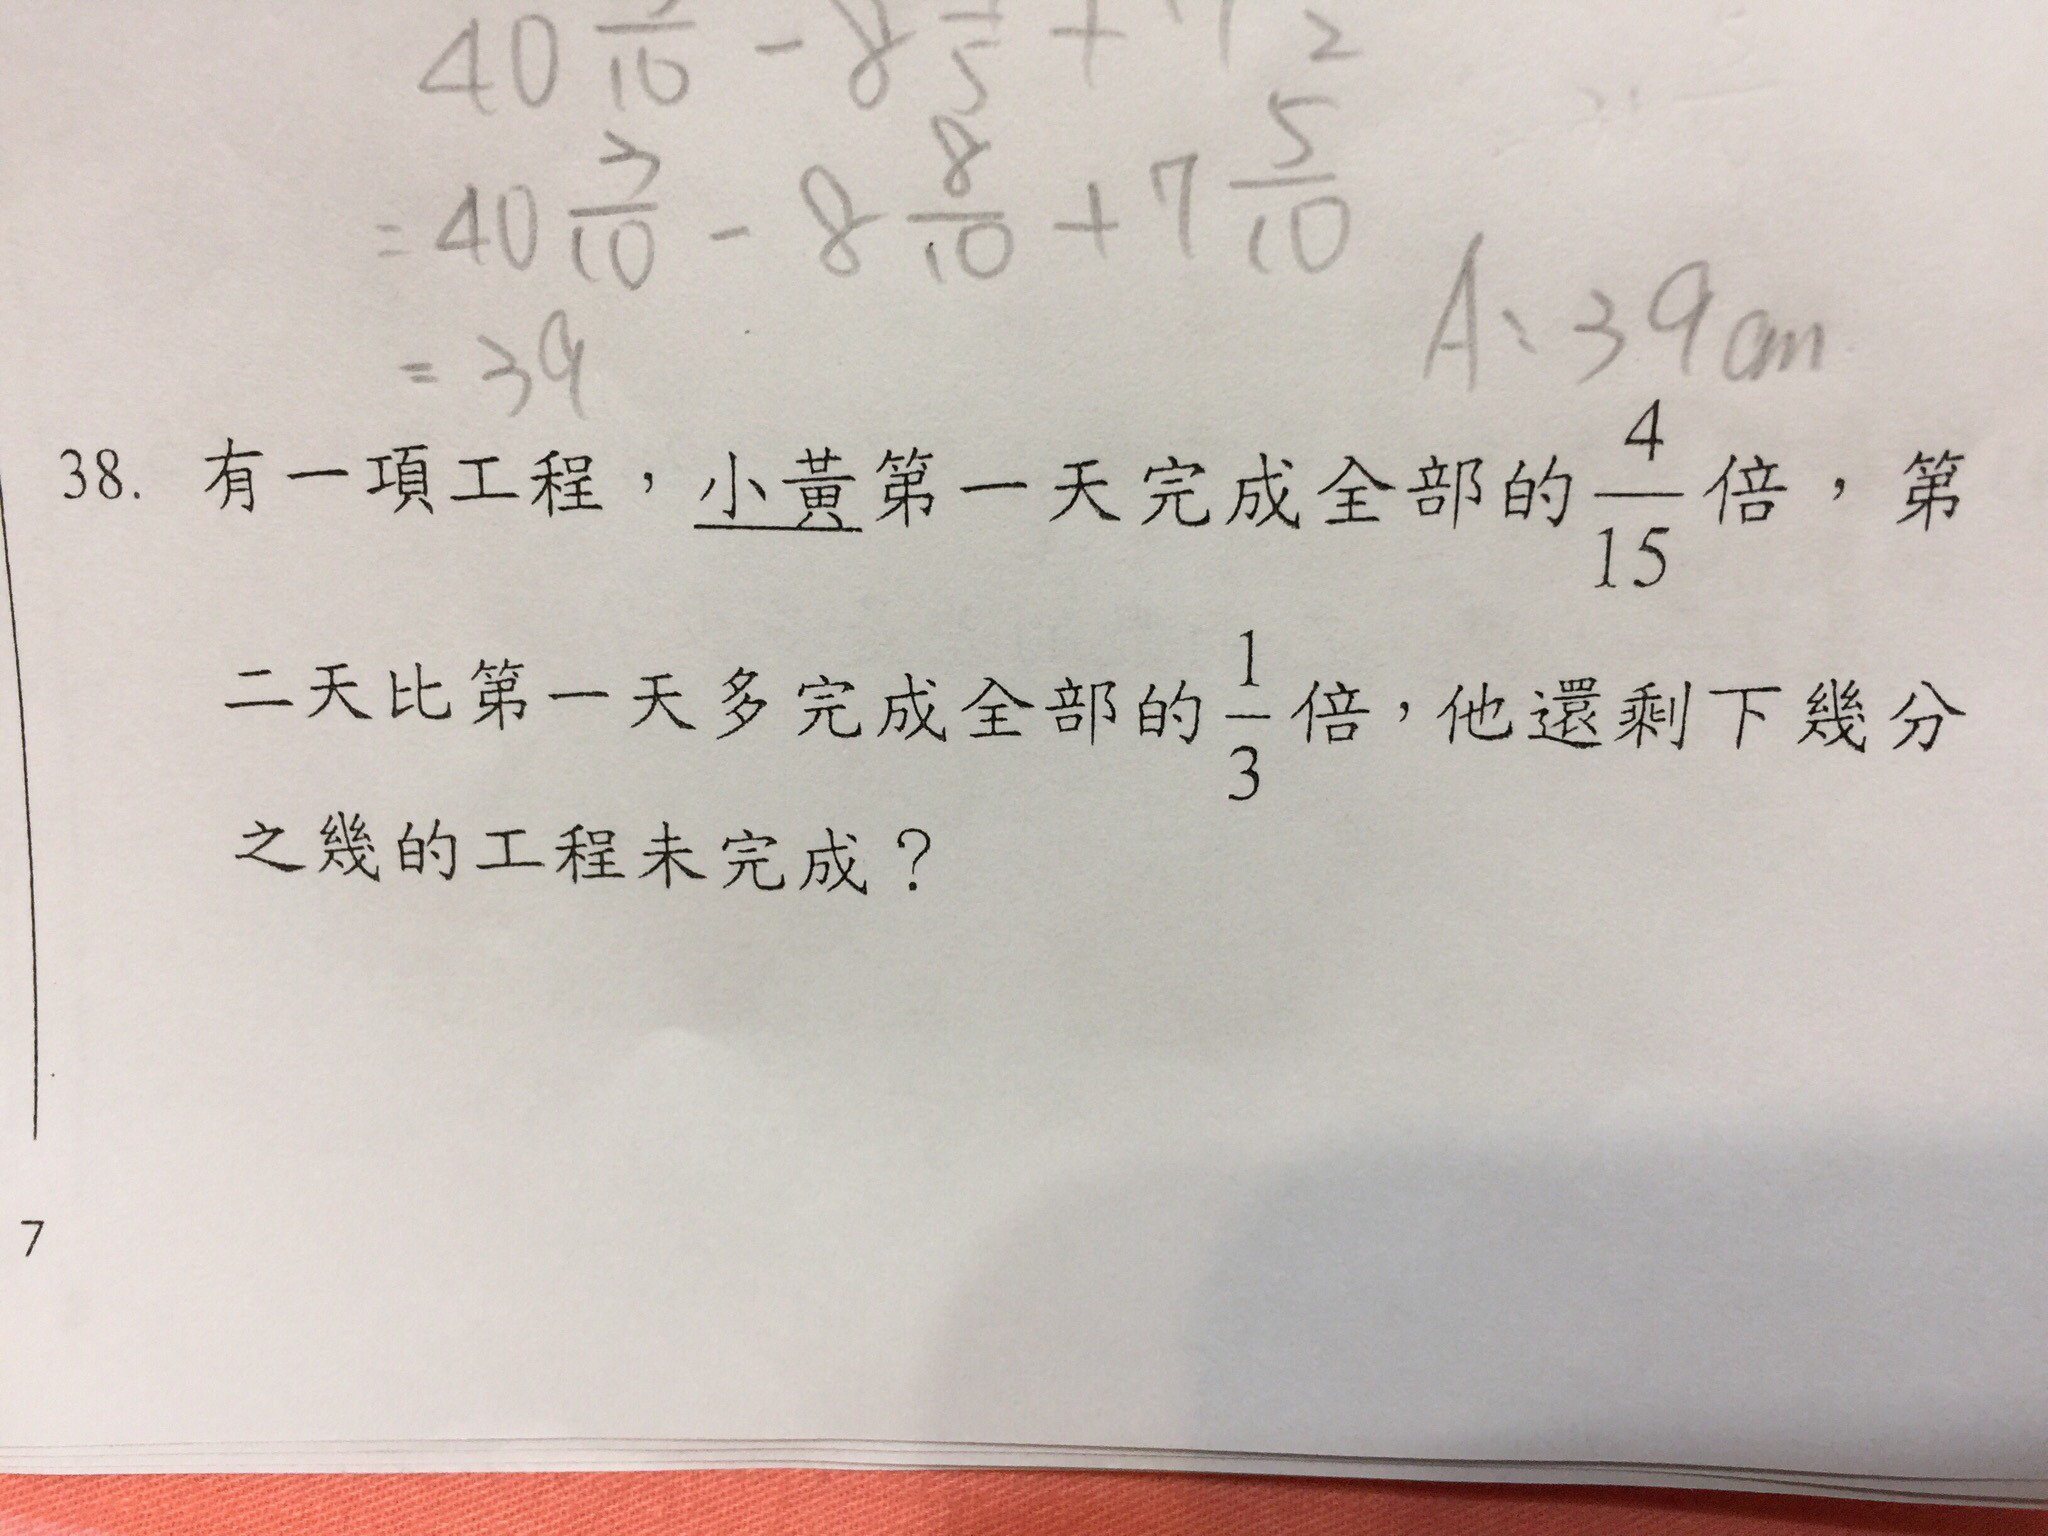 40 /10 - 8 /5 + 7 /2
= 40 3/10 - 8 8/10 + 7 5/10
= 39
A: 39 cm
38. 有一項工程，小黃第一天完成全部的 4/15 倍，第
二天比第一天多完成全部的 1/3 倍，他還剩下幾分
之幾的工程未完成？
7